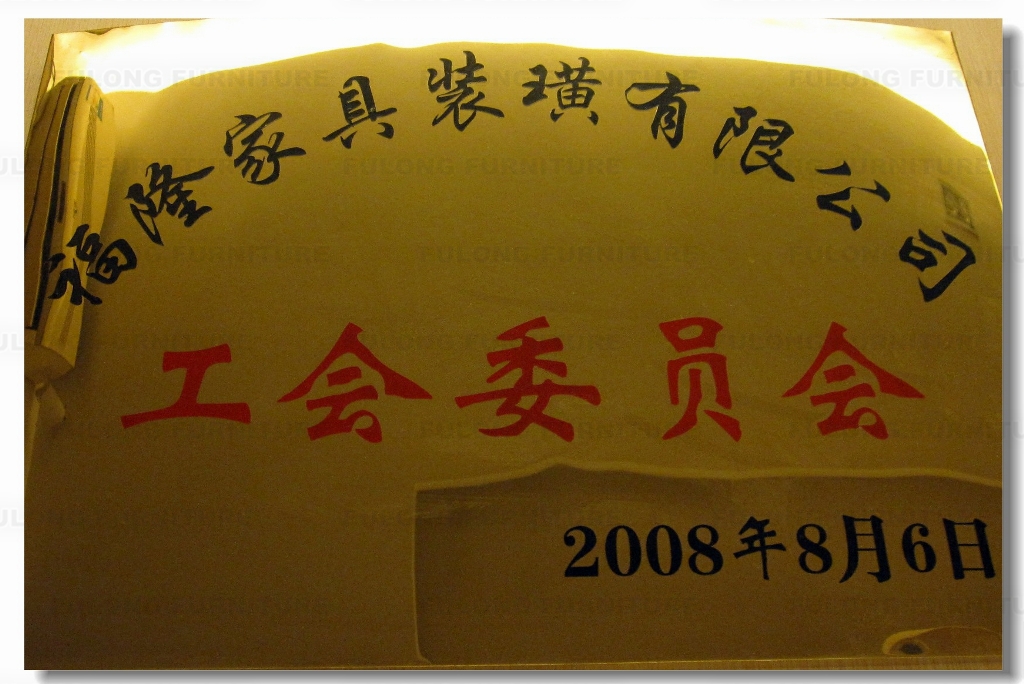 福隆家具装璜有限公司
工会委员会
2008年8月6日
FULONG FURNITURE